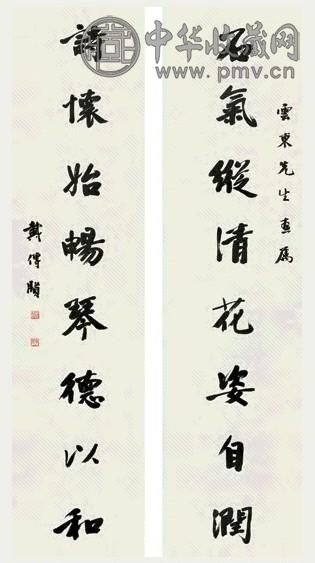 中华收藏网
www.pmv.cn
雲東先生惠属
石氣縱清花姿自潤
詩懷始暢琴德以和
戴傳賢